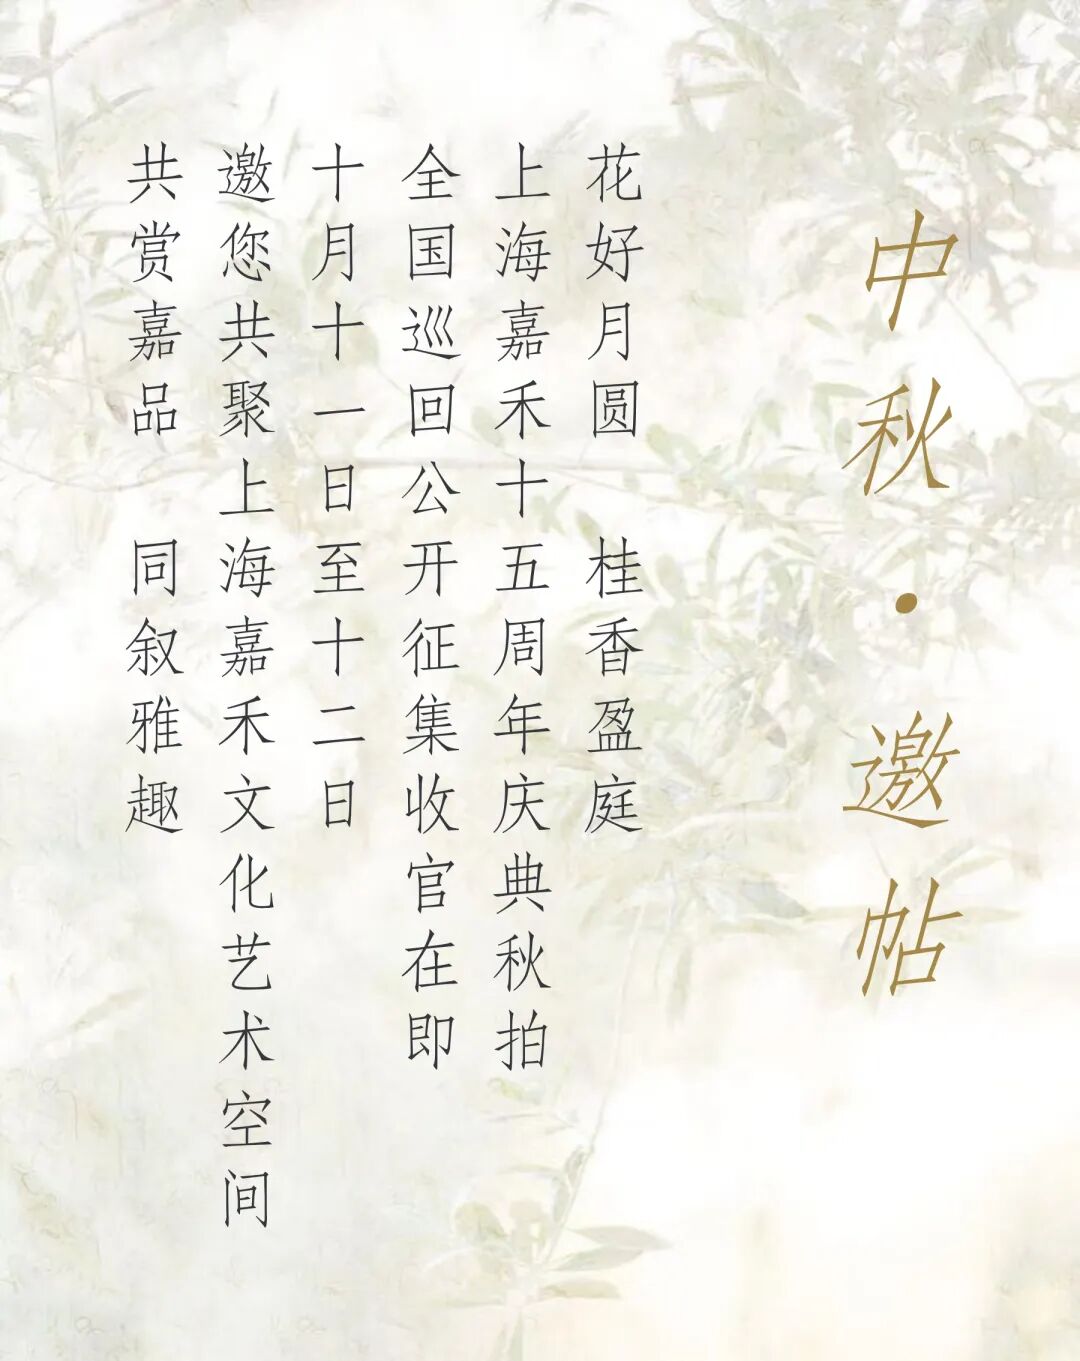 中秋·邀帖
花好月圆 桂香盈庭
上海嘉禾十五周年庆典秋拍
全国巡回公开征集收官在即
十月十一日至十二日
邀您共聚上海嘉禾文化艺术空间
共赏嘉品 同叙雅趣